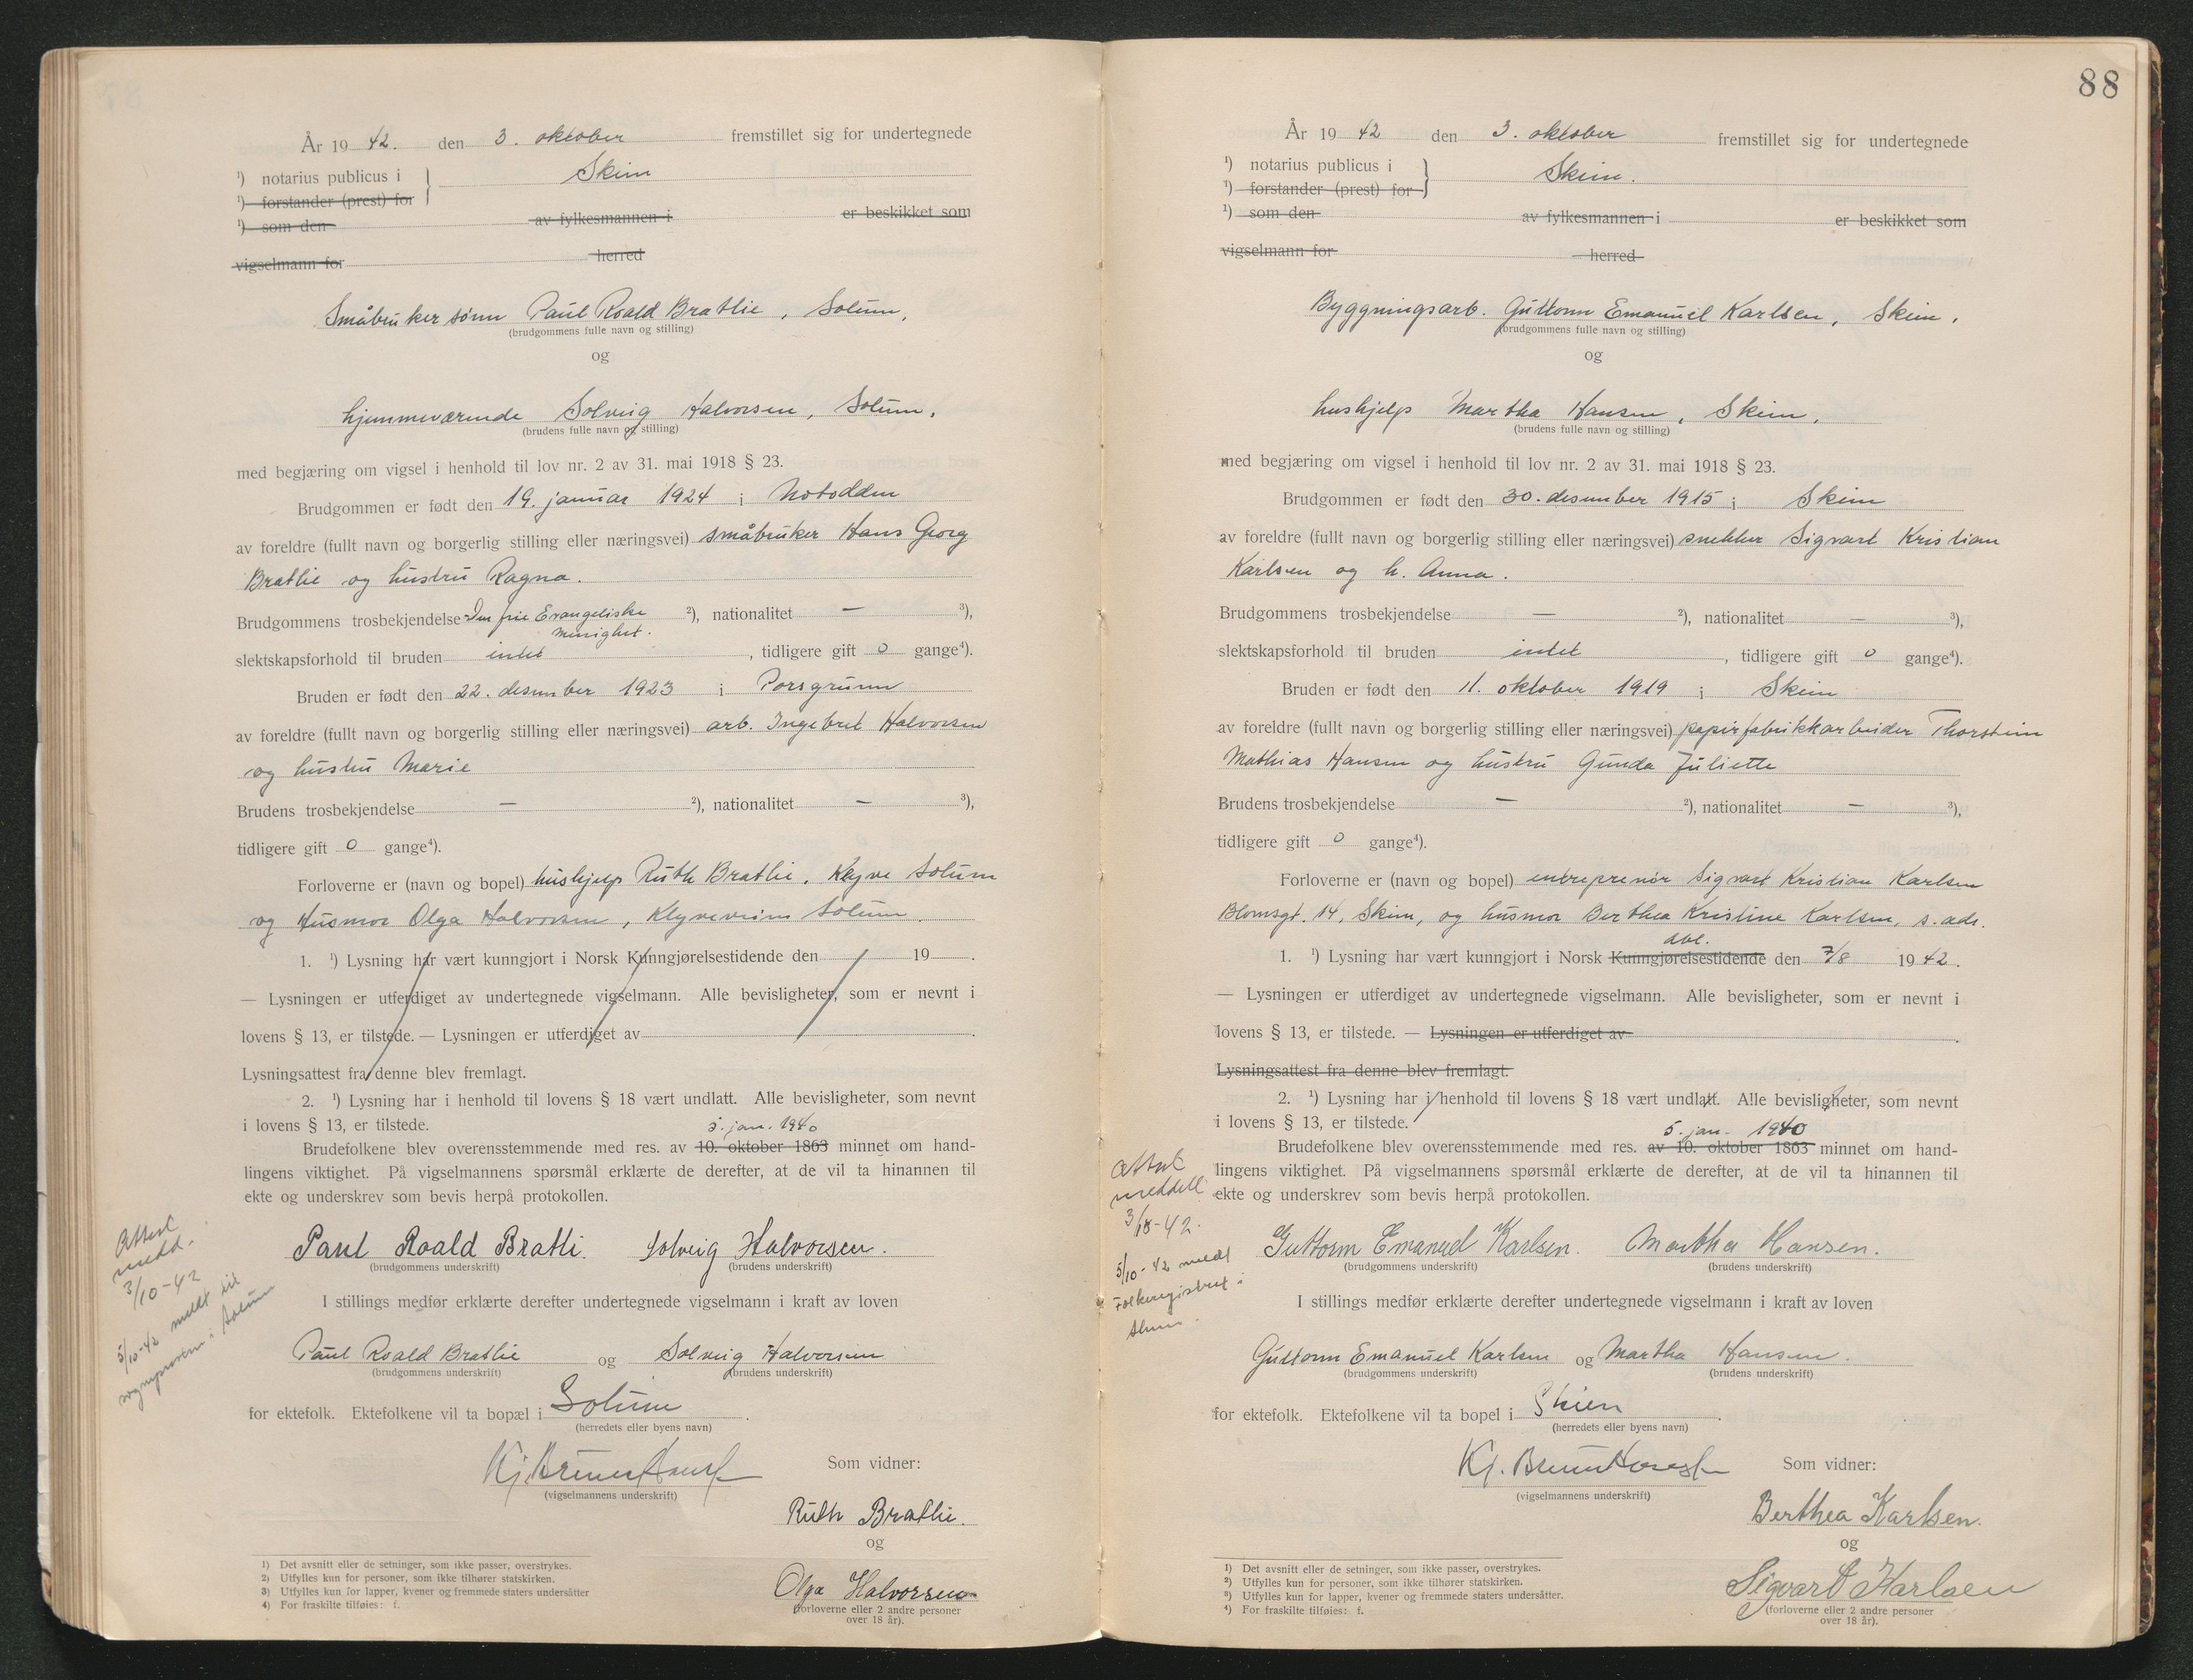 År 1942. den 3. oktober fremstillet sig for undertegnede
¹) notarius publicus i } Skien
¹) forstander (prest) for
¹) som den av fylkesmannen i er beskikket som
vigselmann for herred
Småbrukersønn Paul Roald Bratlie, Solum,
(brudgommens fulle navn og stilling)
og
hjemmeværende Solveig Halvorsen, Solum,
(brudens fulle navn og stilling)
med begjæring om vigsel i henhold til lov nr. 2 av 31. mai 1918 § 23.
Brudgommen er født den 19. januar 1924 i Notodden
av foreldre (fullt navn og borgerlig stilling eller næringsvei) småbruker Hans Georg
Bratlie og hustru Ragna.
Brudgommens trosbekjendelse Den frie Evangeliske ²), nationalitet — ³),
menighet.
slektskapsforhold til bruden intet, tidligere gift 0 gange⁴).
Bruden er født den 22. desember 1923 i Porsgrunn
av foreldre (fullt navn og borgerlig stilling eller næringsvei) arb. Ingebret Halvorsen
og hustru Marie
Brudens trosbekjendelse — ²), nationalitet — ³),
tidligere gift 0 gange⁴).
Forloverne er (navn og bopel) hushjelp Ruth Bratlie, Klyve Solum
og Husmor Olga Halvorsen, Klyveveien Solum.
1. ¹) Lysning har vært kunngjort i Norsk Kunngjørelsestidende den 19 .
— Lysningen er utferdiget av undertegnede vigselmann. Alle bevisligheter, som er nevnt i
lovens § 13, er tilstede. — Lysningen er utferdiget av .
Lysningsattest fra denne blev fremlagt.
2. ¹) Lysning har i henhold til lovens § 18 vært undlatt. Alle bevisligheter, som nevnt
i lovens § 13, er tilstede.
5. jan. 1940
Brudefolkene blev overensstemmende med res. av 10. oktober 1863 minnet om hand-
lingens viktighet. På vigselmannens spørsmål erklærte de derefter, at de vil ta hinannen til
ekte og underskrev som bevis herpå protokollen.
Attest
medd.
3/10-42
5/10-42 meldt til
sognepresten i Solum
Paul Roald Bratli. Solveig Halvorsen.
(brudgommens underskrift) (brudens underskrift)
I stillings medfør erklærte derefter undertegnede vigselmann i kraft av loven
Paul Roald Bratlie og Solveig Halvorsen
(brudgommens underskrift) (brudens underskrift)
for ektefolk. Ektefolkene vil ta bopæl i Solum.
(herredets eller byens navn)
Kj.
(vigselmannens underskrift)
Som vidner:
Ruth Bratlie.
og
Olga Halvorsen
(forloverne eller 2 andre personer
over 18 år).
1) Det avsnitt eller de setninger, som ikke passer, overstrykes.
2) Utfylles kun for personer, som ikke tilhører statskirken.
3) Utfylles kun for lapper, kvener og fremmede staters undersåtter
4) For fraskilte tilføies: f.
88
År 1942 den 3. oktober fremstillet sig for undertegnede
¹) notarius publicus i } Skien.
¹) forstander (prest) for
¹) som den av fylkesmannen i er beskikket som
vigselmann for herred
Byggningsarb. Guttorm Emanuel Karlsen, Skien,
(brudgommens fulle navn og stilling)
og
hushjelp Martha Hansen, Skien,
(brudens fulle navn og stilling)
med begjæring om vigsel i henhold til lov nr. 2 av 31. mai 1918 § 23.
Brudgommen er født den 30. desember 1915 i Skien
av foreldre (fullt navn og borgerlig stilling eller næringsvei) snekker Sigvart Kristian
Karlsen og h. Anna.
Brudgommens trosbekjendelse — ²), nationalitet — ³),
slektskapsforhold til bruden intet, tidligere gift 0 gange⁴).
Bruden er født den 11. oktober 1919 i Skien
av foreldre (fullt navn og borgerlig stilling eller næringsvei) papirfabrikkarbeider Thorstein
Mathias Hansen og hustru Gunda Juliette
Brudens trosbekjendelse — ²), nationalitet — ³),
tidligere gift 0 gange⁴).
Forloverne er (navn og bopel) entreprenør Sigvart Kristian Karlsen
Blomsgt. 14, Skien, og husmor Berthea Kristine Karlsen, s. adr.
1. ¹) Lysning har vært kunngjort i Norsk Kunngjørelsestidende den 7/8 1942.
— Lysningen er utferdiget av undertegnede vigselmann. Alle bevisligheter, som er nevnt i
lovens § 13, er tilstede. — Lysningen er utferdiget av .
Lysningsattest fra denne blev fremlagt.
2. ¹) Lysning har i henhold til lovens § 18 vært undlatt. Alle bevisligheter, som nevnt
i lovens § 13, er tilstede.
5. jan. 1940
Brudefolkene blev overensstemmende med res. av 10. oktober 1863 minnet om hand-
lingens viktighet. På vigselmannens spørsmål erklærte de derefter, at de vil ta hinannen til
ekte og underskrev som bevis herpå protokollen.
Attest
meddelt
3/10-42.
5/10-42 meldt
Folkeregistret i
Skien.
Guttorm Emanuel Karlsen. Martha Hansen.
(brudgommens underskrift) (brudens underskrift)
I stillings medfør erklærte derefter undertegnede vigselmann i kraft av loven
Guttorm Emanuel Karlsen og Martha Hansen.
(brudgommens underskrift) (brudens underskrift)
for ektefolk. Ektefolkene vil ta bopel i Skien.
(herredets eller byens navn)
Kj.
(vigselmannens underskrift)
Som vidner:
Berthea Karlsen.
og
Sigvart Karlsen
(forloverne eller 2 andre personer
over 18 år).
1) Det avsnitt eller de setninger, som ikke passer, overstrykes.
²) Utfylles kun for personer, som ikke tilhører statskirken.
³) Utfylles kun for lapper, kvener og fremmede staters undersåtter.
⁴) For fraskilte tilføies: f.